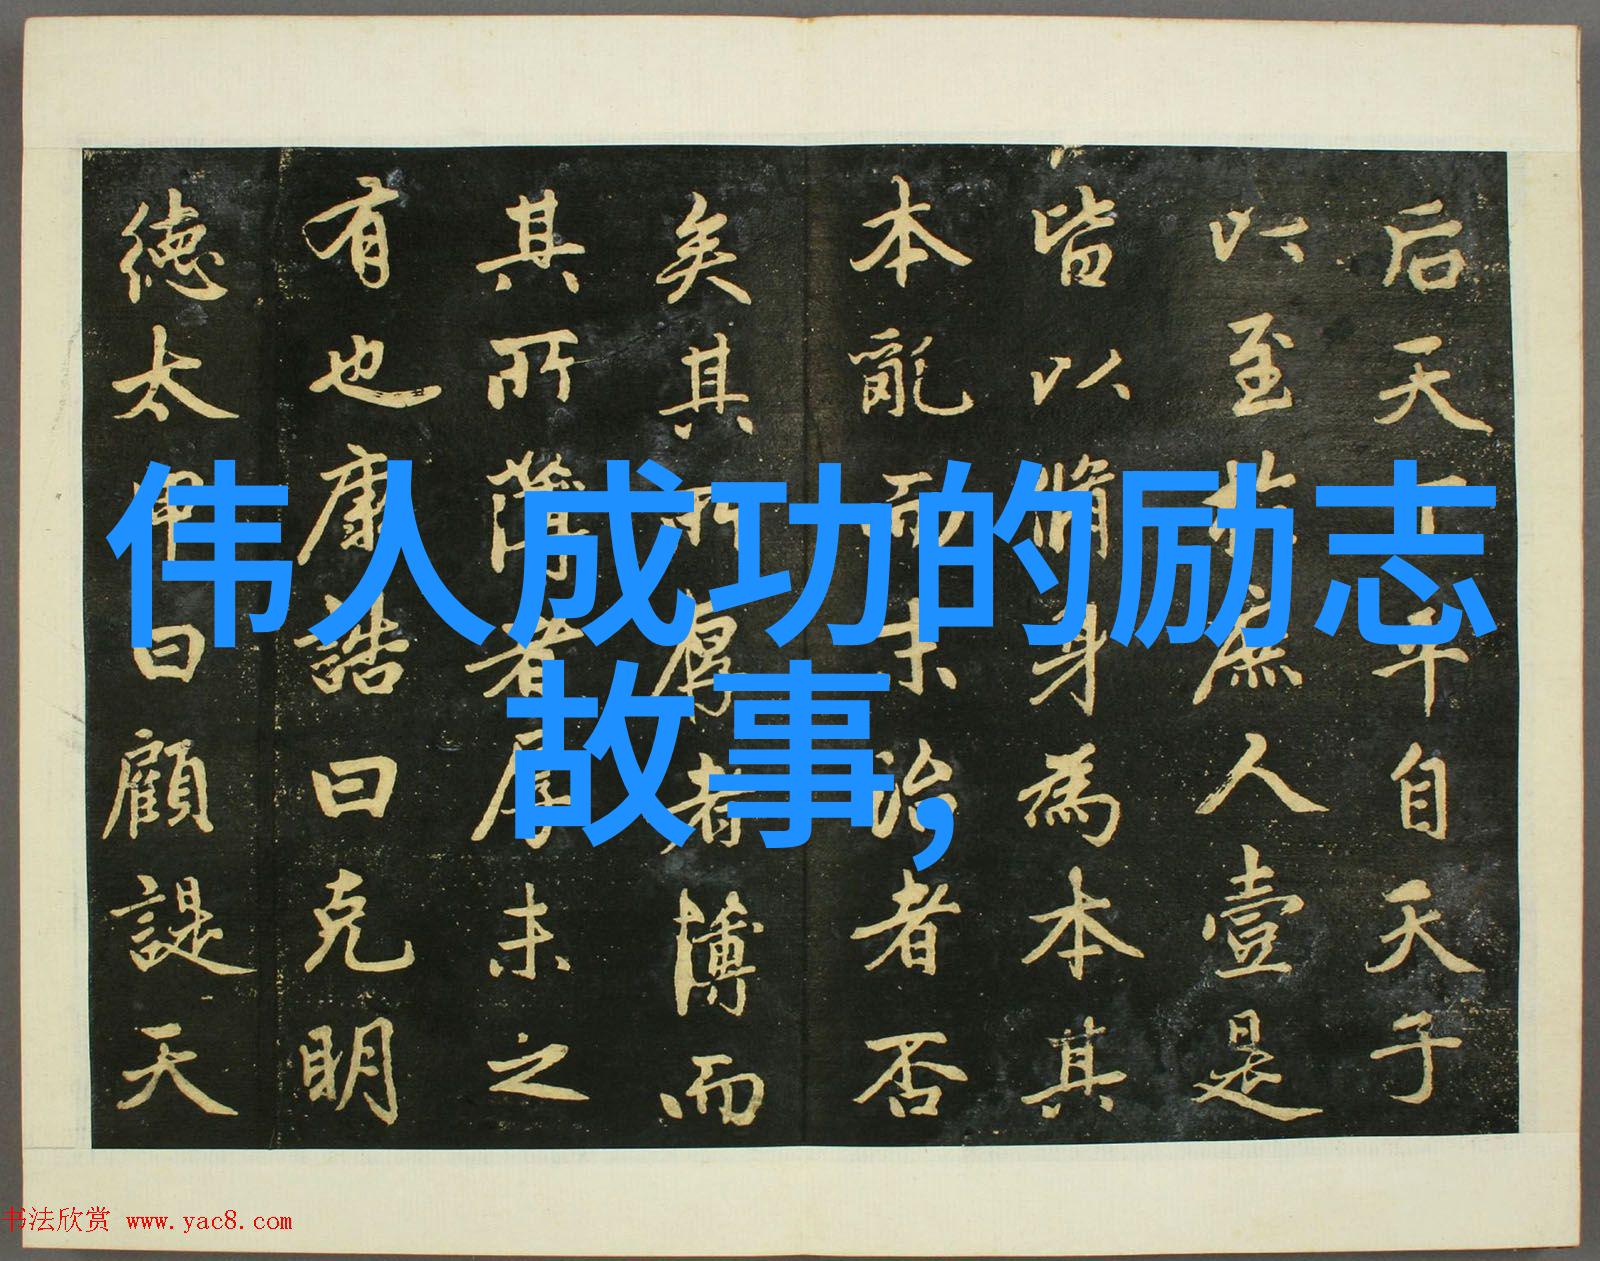 后天下平自天子
以至於庶人壹是
皆以脩身為本其
本亂而末治者否
矣其所厚者薄而
其所薄者厚未之
有也康誥曰克明
德太甲曰顧諟天
伟人成功的励志
故事,
书法欣赏 www.yac8.com